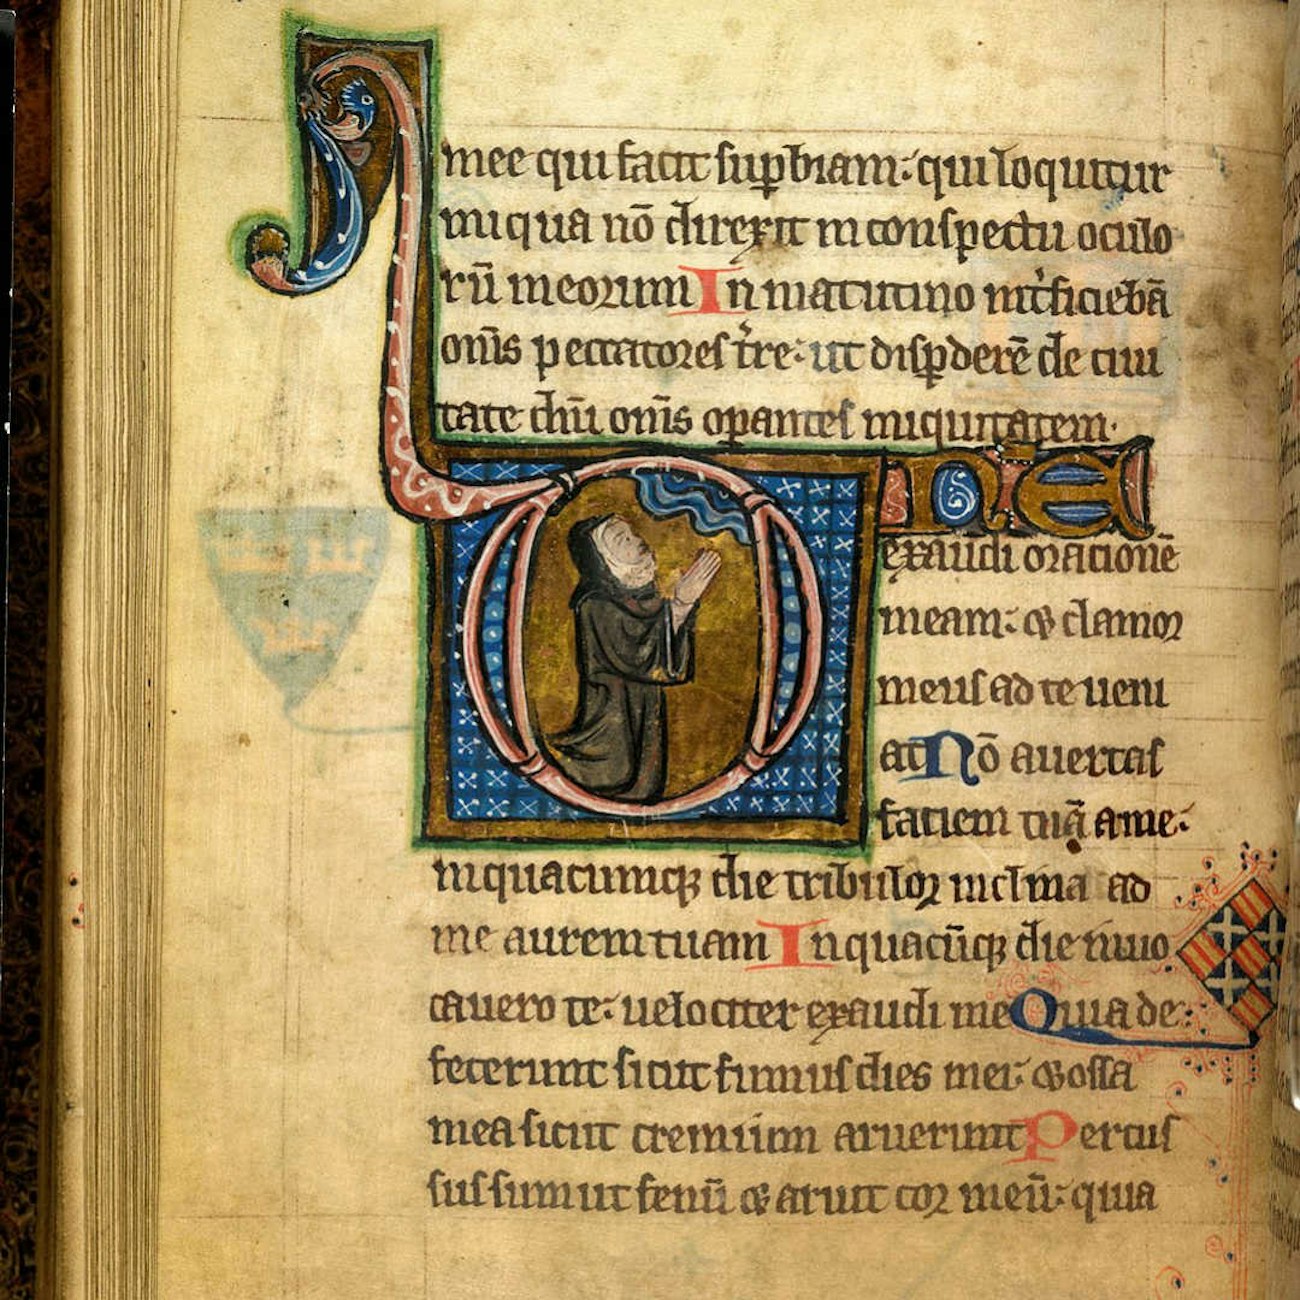 mee qui facit sup̱biam: qui loquitur
iniqua nō direxit in conspectu oculo
rū meorum In matutino int̓ficiebā
om̄s peccatores t̓re: ut disp̱derē de ciui
tate dn̄i om̄s op̱antes iniquitatem.
DNE
exaudi orationē
meam: ⁊ clamor
meus ad te ueni
at Nō auertas
faciem tuā a me:
inquacumq̣ꝫ die tribulor inclina ad
me aurem tuam Inquacūqꝫ die inuo
cauero te: uelociter exaudi me Quia de:
fecerunt sicut fumus dies mei: ⁊ ossa
mea sicut cremium aruerunt Percus
sus sum ut fenū ⁊ aruit cor meū: quia